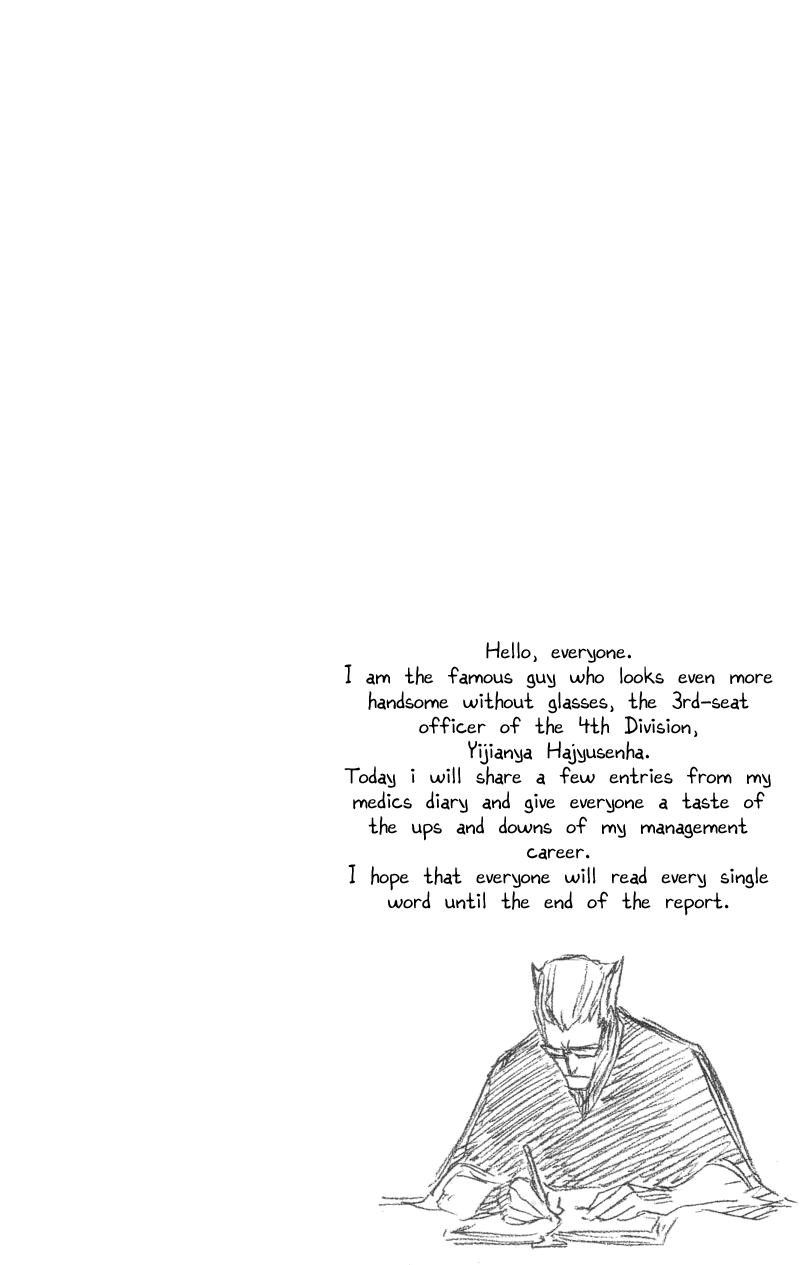 Hello, everyone.
I am the famous guy who looks even more
handsome without glasses, the 3rd-seat
officer of the 4th Division,
Yijianya Hajyusenha.
Today i will share a few entries from my
medics diary and give everyone a taste of
the ups and downs of my management
career.
I hope that everyone will read every single
word until the end of the report.